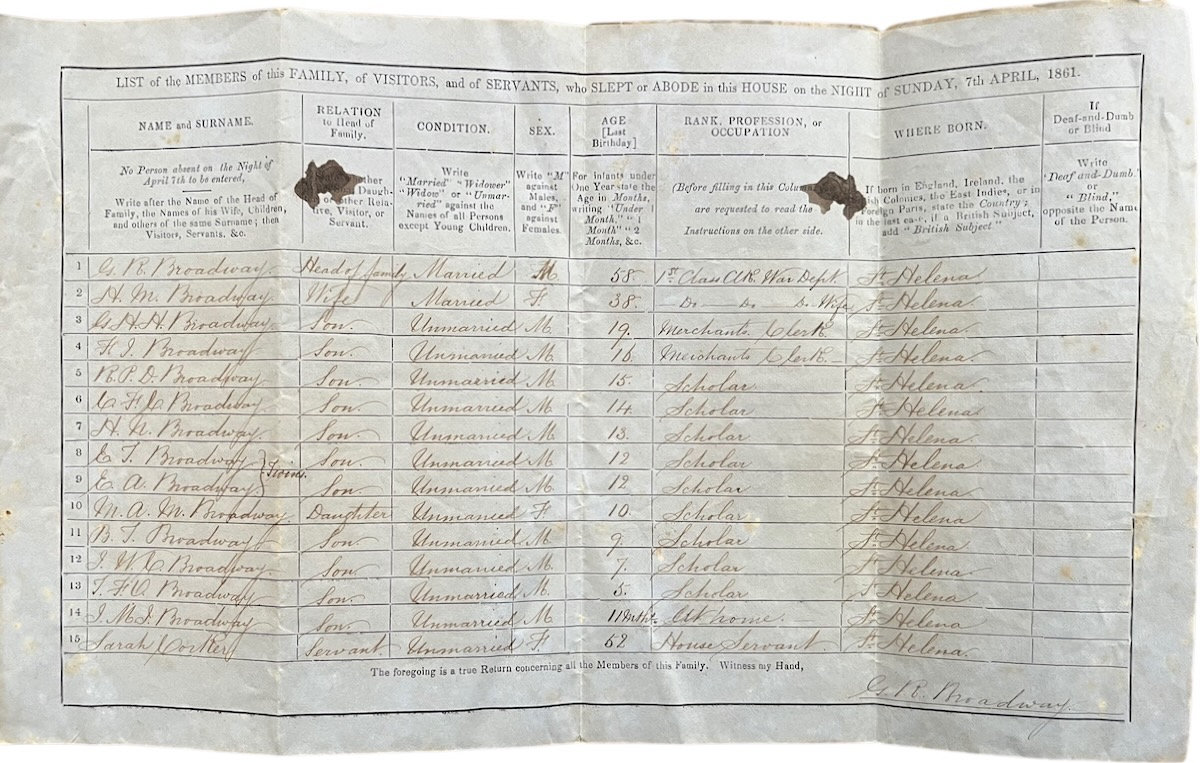 LIST of the MEMBERS of this FAMILY, of VISITORS, and of SERVANTS, who SLEPT or ABODE in this HOUSE on the NIGHT of SUNDAY, 7th APRIL, 1861.
NAME and SURNAME.
No Person absent on the Night of
April 7th to be entered,
Write after the Name of the Head of
Family, the Names of his Wife, Children,
and others of the same Surname; then
Visitors, Servants, &c.
RELATION
to Head of
Family.
Daugh-
other Rela-
tive, Visitor, or
Servant.
CONDITION.
Write
"Married" "Widower"
"Widow" or "Unmar-
ried" against the
Names of all Persons
except Young Children.
SEX.
Write "M"
against
Males,
and "F"
against
Females.
AGE
[Last
Birthday]
For Infants under
One Year state the
Age in Months,
writing "Under 1
Month" "1
Month" "2
Months, &c.
RANK, PROFESSION, or
OCCUPATION
(Before filling in this
are requested to read the
Instructions on the other side.
WHERE BORN.
If born in England, Ireland, the
Colonies, the East Indies, or in
Foreign Parts, state the Country;
in the last case, if a British Subject,
add "British Subject"
If
Deaf-and-Dumb
or Blind
Write
"Deaf-and-Dumb."
or
"Blind,"
opposite the Name
of the Person.
1 G. R. Broadway. Head of family Married M. 58. 1st Class Clk. War Dept. St. Helena.
2 H. M. Broadway. Wife Married F. 38. Do — Do Do Wife St. Helena.
3 G. H. H. Broadway. Son. Unmarried M. 19. Merchants Clerk. St. Helena.
4 Broadway Son. Unmarried M. Merchants Clerk. St. Helena.
5 R. P. D. Broadway Son. Unmarried M. 15. Scholar. St. Helena.
6 Broadway Son. Unmarried M. 14. Scholar St. Helena.
7 H. N. Broadway. Son. Unmarried M. 13. Scholar St. Helena.
8 E. T. Broadway } Twins. Son. Unmarried M. 12 Scholar St. Helena
9 E. A. Broadway Son. Unmarried M. 12 Scholar St. Helena.
10 M. A. M. Broadway. Daughter Unmarried F 10. Scholar St. Helena
11 B. T. Broadway Son. Unmarried M. 9. Scholar St. Helena.
12 Broadway. Son. Unmarried M. 7. Scholar St. Helena.
13 Broadway. Son. Unmarried M. 5. Scholar St. Helena.
14 Broadway Son. Unmarried M 11 Mths. At home. St. Helena
15 Sarah Corker Servant Unmarried F. 52 House Servant. St. Helena.
The foregoing is a true Return concerning all the Members of this Family. Witness my Hand,
G. R. Broadway.